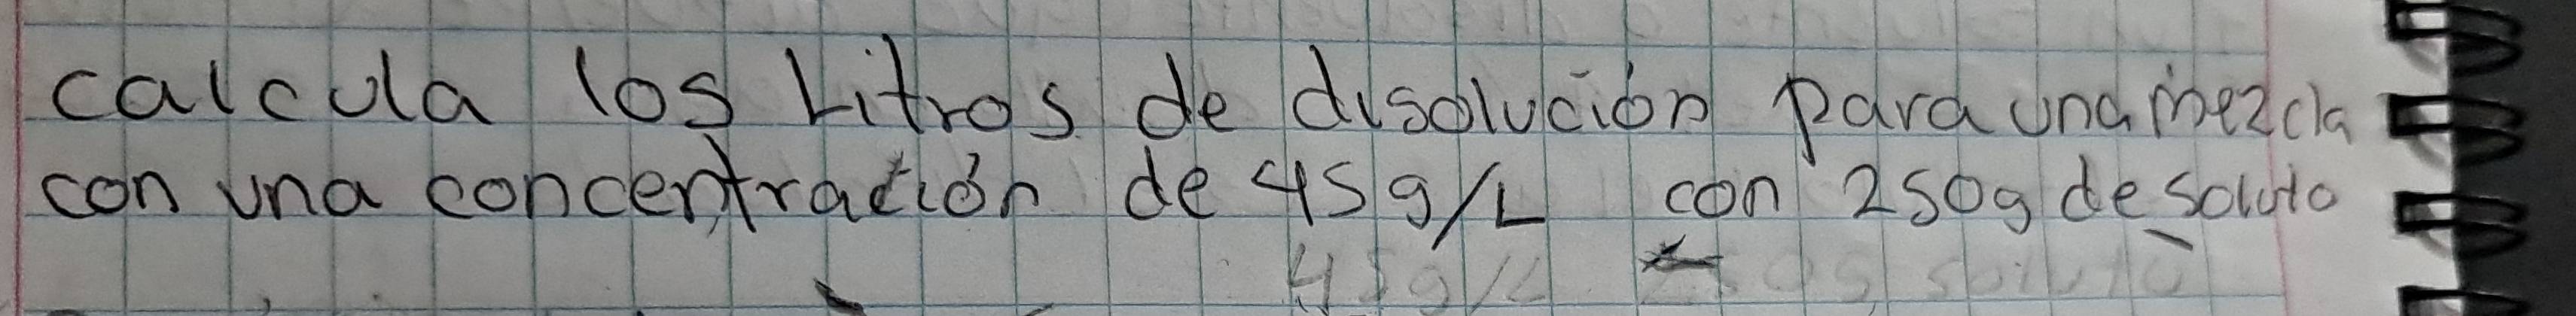 calcula los Litros de disolución para una mezcla
con una concentración de 45g/L con 250g de soluto
45g/L soluto